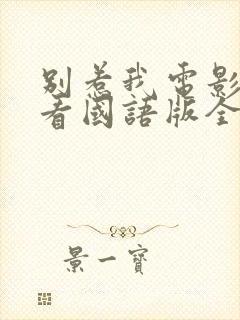 别惹我电影
看國語版全
景一寶